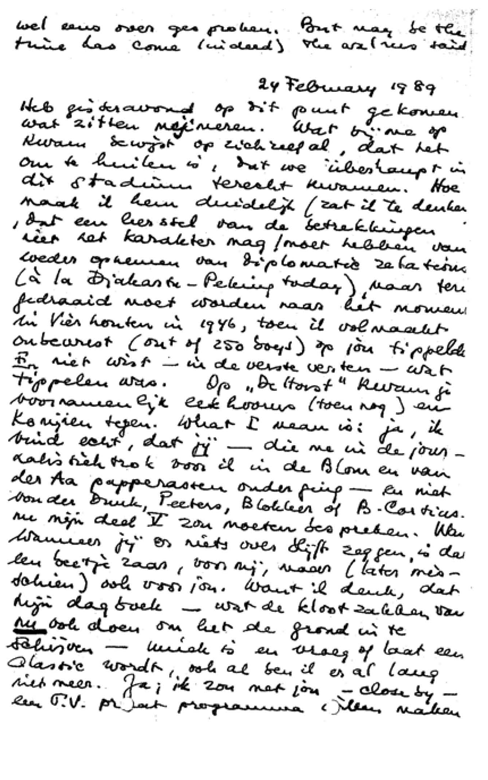 wel eens over gesproken. But may be the
time has come (indeed) the walrus said
24 February 1989
Heb gisteravond op dit punt gekomen
wat zitten mijmeren. Wat bij me op
kwam bewijst op zichzelf al, dat het
om te huilen is, dat we überhaupt in
dit stadium terecht kwamen. Hoe
maak ik hem duidelijk (zat ik te denken
, dat een herstel van de betrekkingen
niet het karakter mag/moet hebben van
weder opnemen van diplomatic relations
(à la Djakarta-Peking today), maar terug
gedraaid moet worden naar het moment
in Vierhouten in 1946, toen ik volmaakt
onbewust (out of 250 boys) op jou tippelde
En niet wist — in de verste verten — wat
tippelen was. Op "De Horst" kwam je
voornamelijk eekhoorns (toen nog) en
konijnen tegen. What I mean is: ja, ik
vind echt, dat jij — die me in de jour-
nalistiek trok voor ik in de Blom en van
der Aa papperasten onder ging — en niet
von der Dunk, Peeters, Blokker of B-Corstius.
nu mijn deel V zou moeten bespreken.
wanneer jij er niets over blijft zeggen, is dat
een beetje raar, voor mij, maar (later mis-
schien) ook voor jou. Want ik denk, dat
mijn dagboek — wat de klootzakken van
nu ook doen om het de grond in te
schrijven — uniek is en vroeg of laat een
Classic wordt, ook al ben ik er al lang
niet meer. Ja, ik zou met jou — close by —
een T.V. programma willen maken